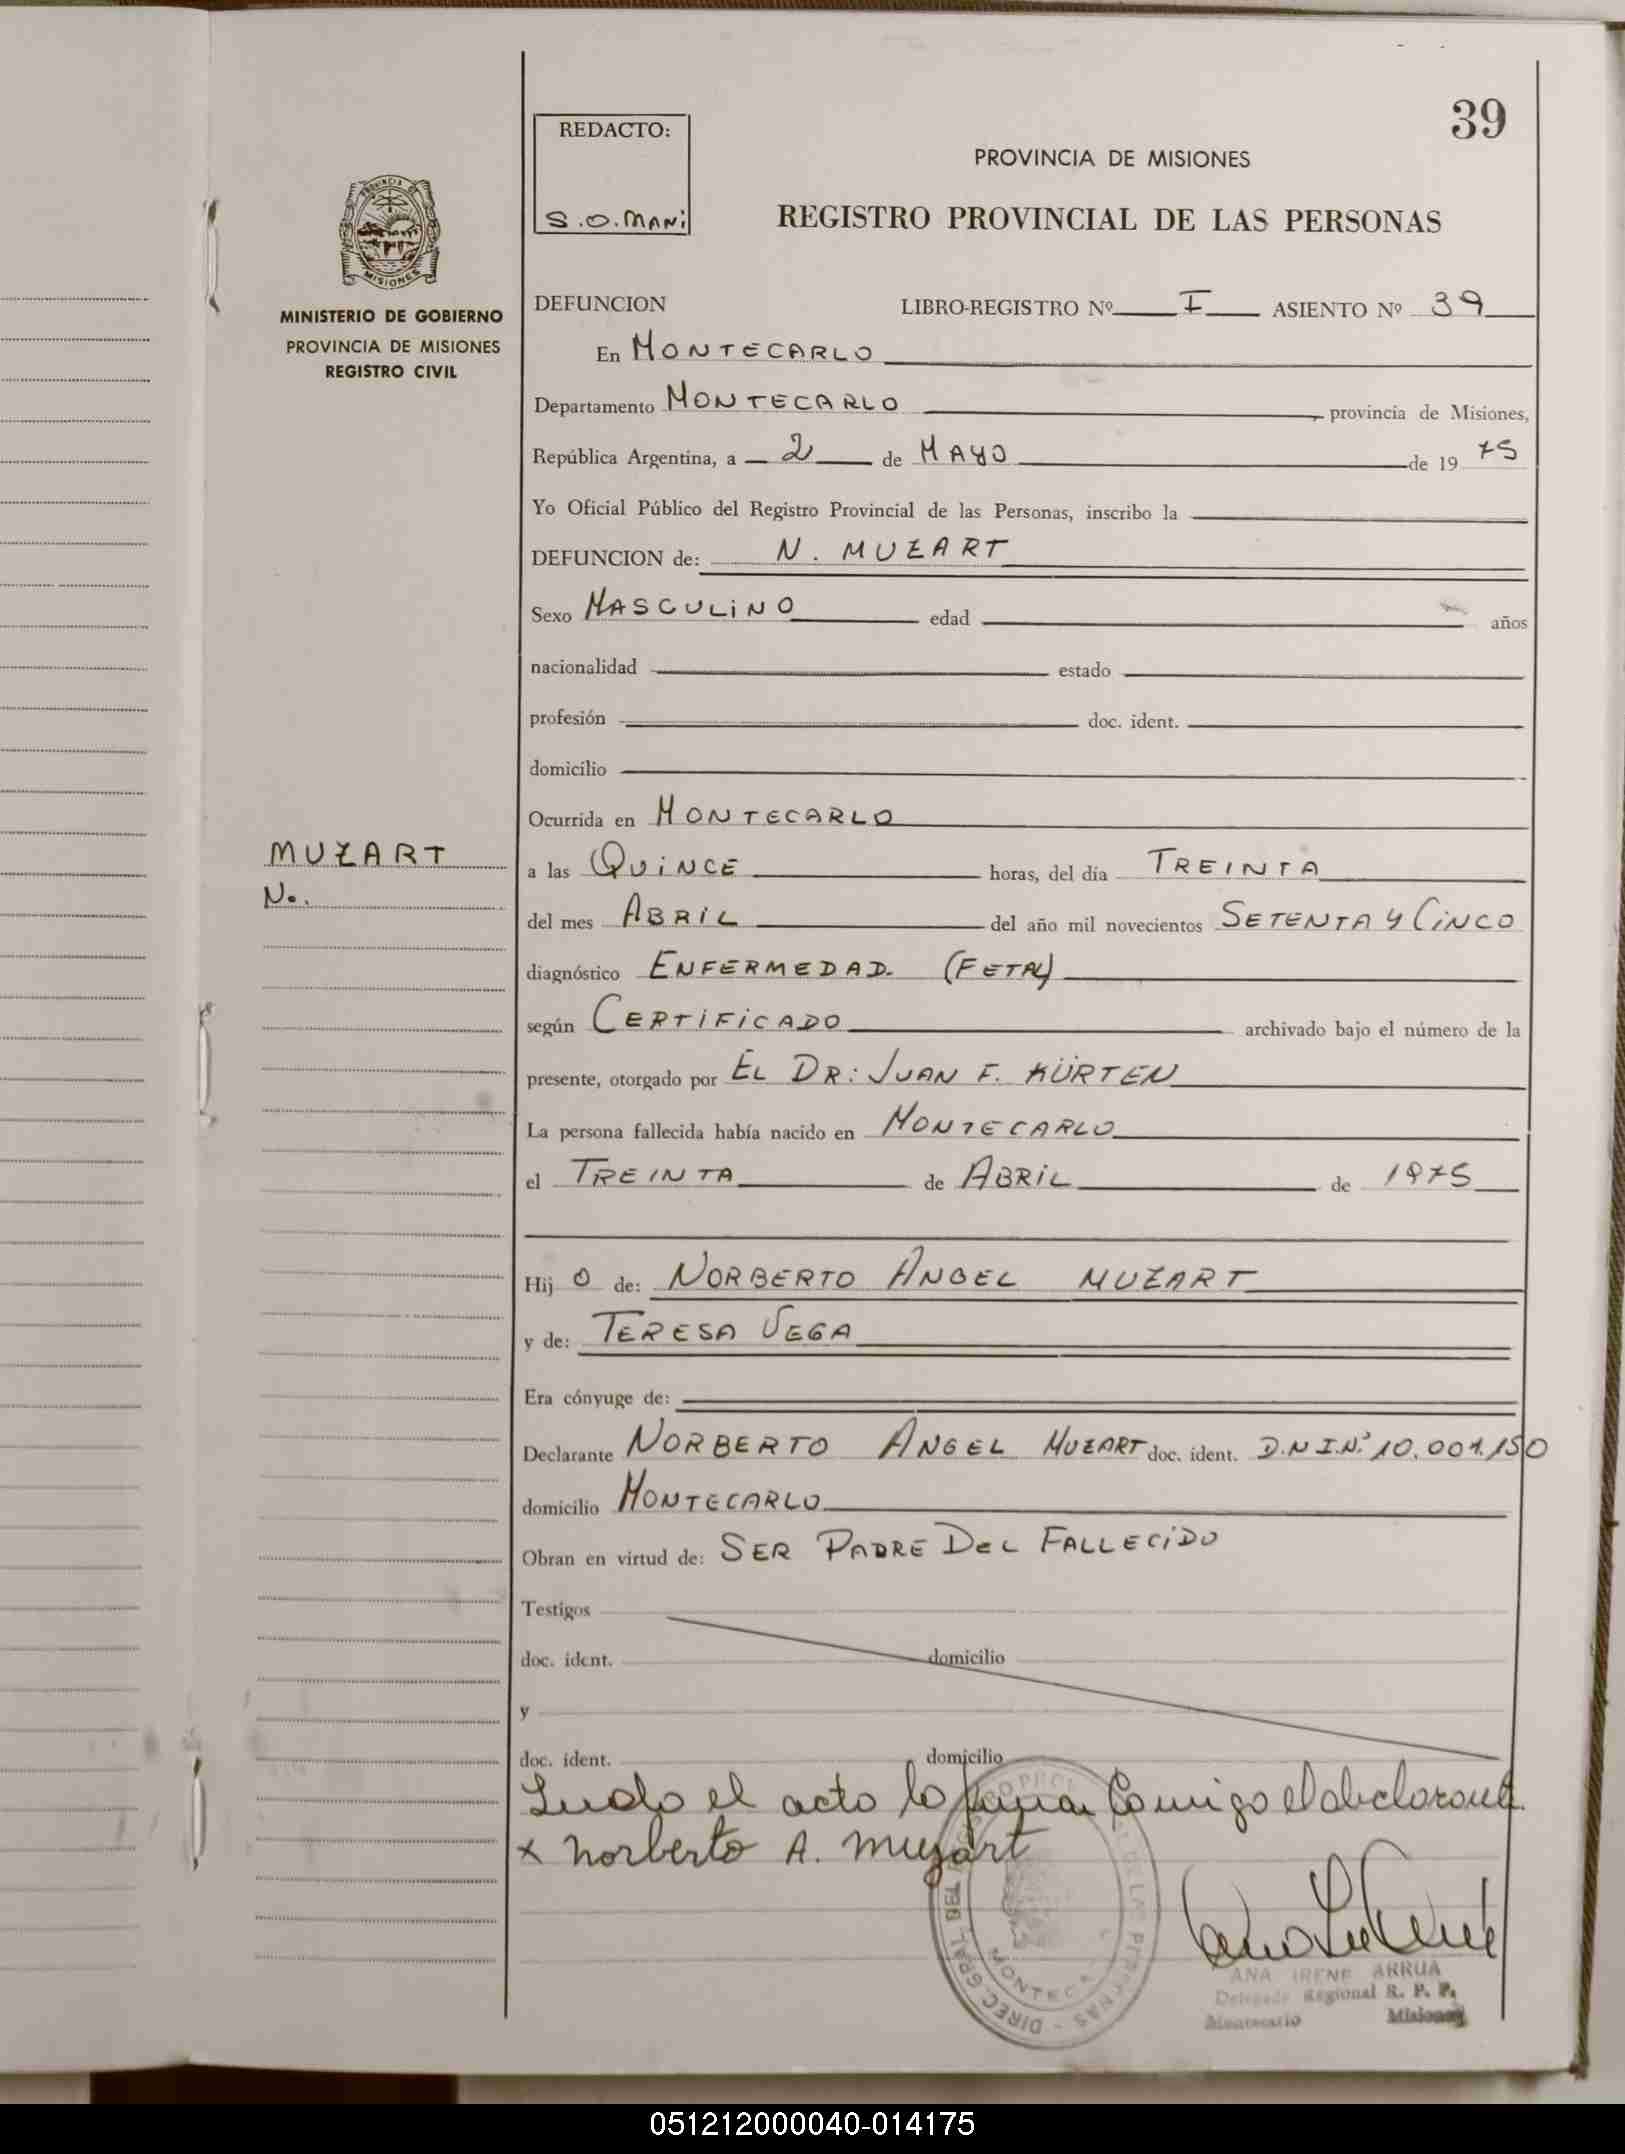 39
REDACTO:
S.O.MANi
PROVINCIA DE MISIONES
REGISTRO PROVINCIAL DE LAS PERSONAS
PROVINCIA DE
MISIONES
MINISTERIO DE GOBIERNO
PROVINCIA DE MISIONES
REGISTRO CIVIL
DEFUNCION LIBRO-REGISTRO Nº I ASIENTO Nº 39
En MONTECARLO
Departamento MONTECARLO provincia de Misiones,
República Argentina, a 2 de MAYO de 1975
Yo Oficial Público del Registro Provincial de las Personas, inscribo la
DEFUNCION de: N. MUZART
Sexo MASCULiNO edad años
nacionalidad estado
profesión doc. ident.
domicilio
Ocurrida en MONTECARLO
MUZART
No.
a las QUiNCE horas, del día TREINTA
del mes ABRiL del año mil novecientos SETENTA Y CiNCO
diagnóstico ENFERMEDAD. (FETAL)
según CERTiFiCADO archivado bajo el número de la
presente, otorgado por EL DR: JUAN F. KÜRTEN
La persona fallecida había nacido en MONTECARLO
el TREINTA de ABRiL de 1975
Hijo de: NORBERTO ANGEL MUZART
y de: TERESA VEGA
Era cónyuge de:
Declarante NORBERTO ANGEL MUZART doc. ident. D.N.I.Nº 10.001.150
domicilio MONTECARLO
Obran en virtud de: SER PADRE DEL FALLECiDO
Testigos
doc. ident. domicilio
y
doc. ident. domicilio
Leido el acto lo firma Comigo el declorante.
x Norberto A. Muzart
ANA IRENE ARRUA
Delegada Regional R. P. P.
Montecarlo Misiones
051212000040-014175